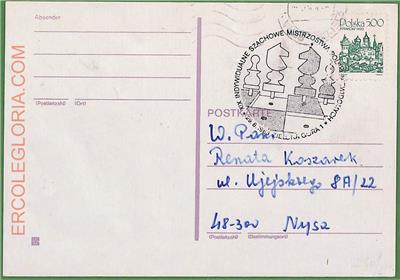 Absender
(Postleitzahl) (Ort)
ERCOLEGLORIA.COM
Polska 500
KRAKÓW
INDYWIDUALNE SZACHOWE MISTRZOSTWA
GÓRA 1
POSTKARTE
W. Pan.
Renata Koszarek
ul. Ujejskiego 8A/22
48-300 Nysa
(Postleitzahl) (Bestimmungsort)